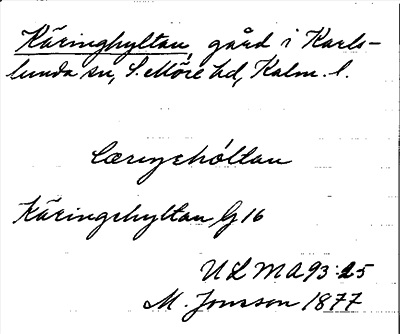 Käringhyltan, gård i Karls-
lunda sn, S. Möre hd, Kalm. l.
Käringehyltan G 16
ULMA 93:25
M. Jonsson 1877